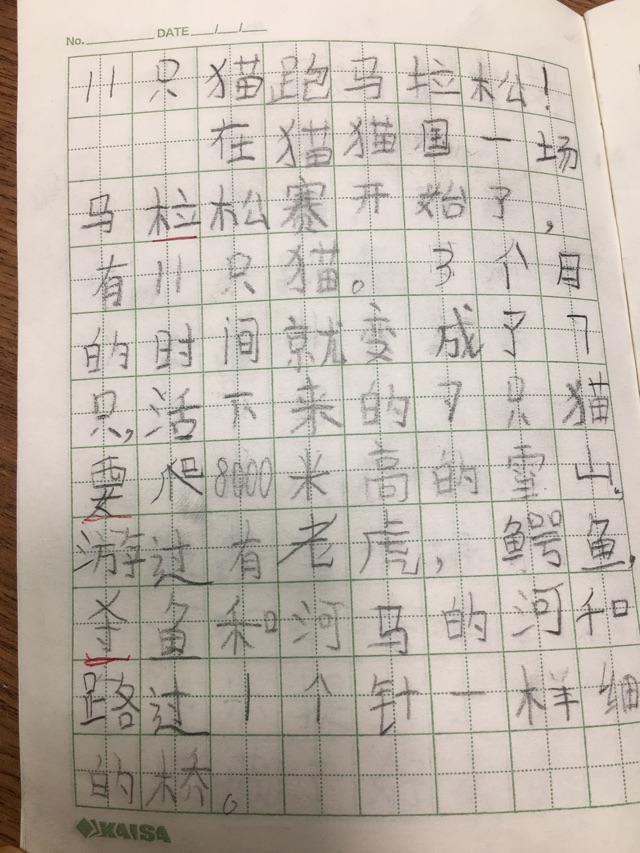 No.________ DATE___/___/___
11只猫跑马拉松!
在猫猫国一场
马拉松赛开始了,
有11只猫。3个月
的时间就变成了7
只,活下来的7只猫
要爬8000米高的雪山。
游过有老虎,鳄鱼,
鱼和河马的河和
路过1个针一样细
的桥。
KAISA